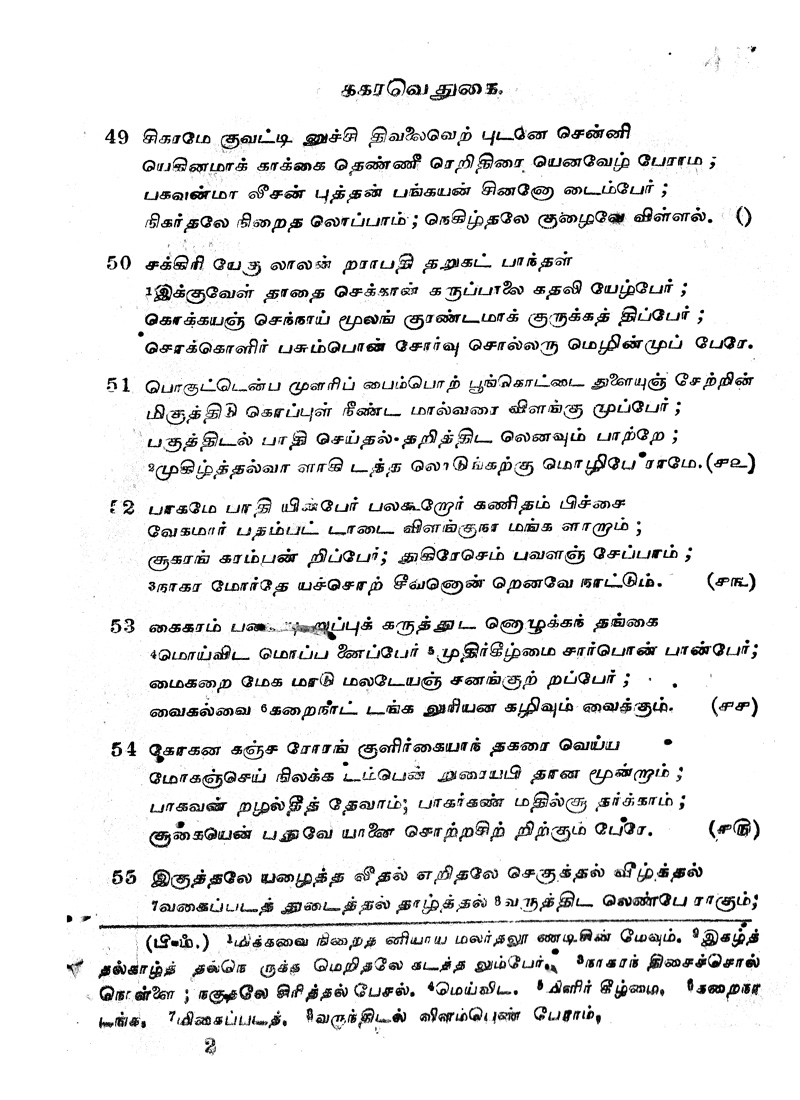 ககரவெதுகை.
49 சிகரமே குவட்டி னுச்சி திவலைவெற் புடனே சென்னி
யெகினமாக் காக்கை தெண்ணீ ரெறிதிரை யெனவேழ் பேராம ;
பகவன்மா லீசன் புத்தன் பங்கயன் சினனோ டைம்பேர் ;
நிகர்தலே நிறைத லொப்பாம் ; நெகிழ்தலே குழைவே விள்ளல். ()
50 சக்கிரி யேகு லாலன் றராபதி தறுகட் பாந்தள்
1இக்குவேள் தாதை செக்கான் கருப்பாலை கதலி யேழ்பேர் ;
கொக்கயஞ் செந்நாய் மூலங் குரண்டமாக் குருக்கத் திப்பேர் ;
சொக்கொளிர் பசும்பொன் சோர்வு சொல்லரு மெழின்முப் பேரே.
51 பொகுட்டென்ப முளரிப் பைம்பொற் பூங்கொட்டை துளையுஞ் சேற்றின்
மிகுத்திடு கொப்புள் நீண்ட மால்வரை விளங்கு முப்பேர் ;
பகுத்திடல் பாதி செய்தல் தறித்திட லெனவும் பாற்றே ;
2முகிழ்த்தல்வா ளாகி டத்த லொடுங்கற்கு மொழிபே ராமே. (௪௨)
52 பாகமே பாதி யின்பேர் பலகூறோர் கணிதம் பிச்சை
வேகமார் பதம்பட் டாடை விளங்குநா மங்க ளாறும் ;
சூகரங் கரம்பன் றிப்பேர்; துகிரேசெம் பவளஞ் சேப்பாம் ;
3நாகர மோர்தே யச்சொற் சீவனொன் றெனவே நாட்டும். (௪௩)
53 கைகரம் றுப்புக் கருத்துட னொழுக்கந் தங்கை
4மொய்விட மொப்ப னைப்பேர் 5முதிர்கீழ்மை சார்பொன் பான்பேர்;
மைகறை மேக மாடு மலடேயஞ் சனங்குற் றப்பேர் ;
வைகல்வை 6கறைநாட் டங்க லுரியன கழிவும் வைக்கும். (௪௪)
54 கோகன கஞ்ச ரோரங் குளிர்கையாந் தகரை வெய்ய
மோகஞ்செய் நிலக்க டம்பென் றுரையபி தான மூன்றும் ;
பாகவன் றழல்தீத் தேவாம்; பாகர்கண் மதில்சூ தர்க்காம் ;
சூகையென் பதுவே யானை சொற்றசிற் றிற்கும் பேரே. (௪௫)
55 இகுத்தலே யழைத்த லீதல் எறிதலே செகுத்தல் வீழ்த்தல்
7வகைப்படத் துடைத்தல் தாழ்த்தல் 8வருத்திட லெண்பே ராகும்;
(பி-ம்.) 1மிக்கவை நிறைத னியாய மலர்தலூ ணடிசின் மேவும். 2இகழ்த்
தல்காழ்த் தல்நெ ருக்க மெறிதலே கடத்த லும்பேர். 3நாகரந் திசைச்சொல்
நொள்ளை ; நகுதலே சிரித்தல் பேசல். 4மெய்விட. 5மிளிர் கீழ்மை. 6கறைநா
டங்க. 7மிகைப்படத். 8வருந்திடல் விளம்பெண் பேராம்.
2